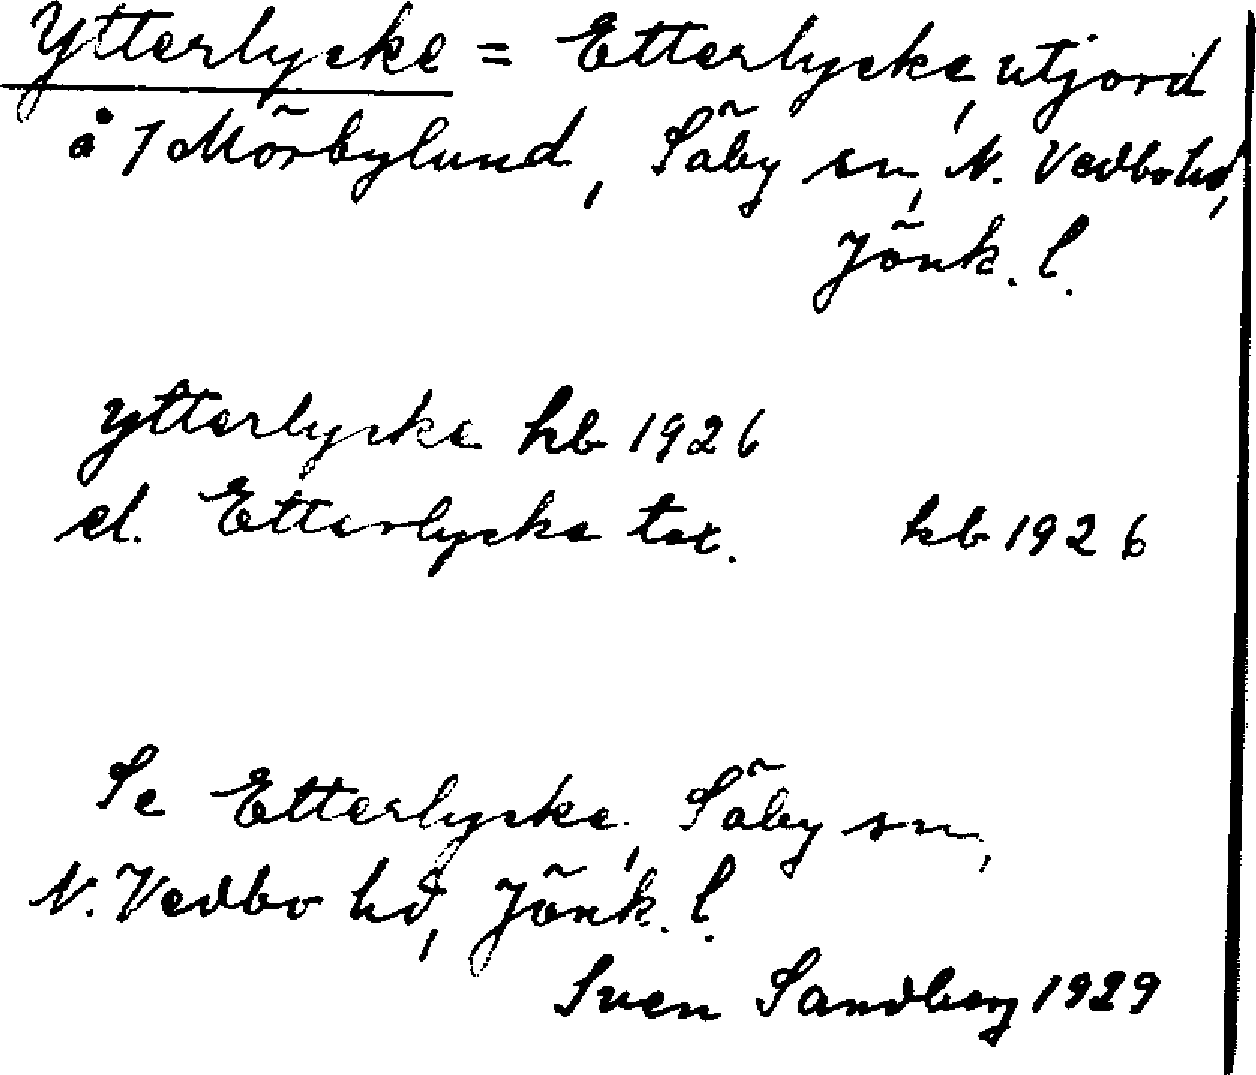 Ytterlycke = Etterlycke, utjord
å 1 Mörbylund, Säby sn, N. Vedbo hd,
Jönk. l.
Ytterlycke hb 1926
el. Etterlycke tax. hb 1926
Se Etterlycke, Säby sn,
N. Vedbo hd, Jönk. l.
Sven Sandberg 1929